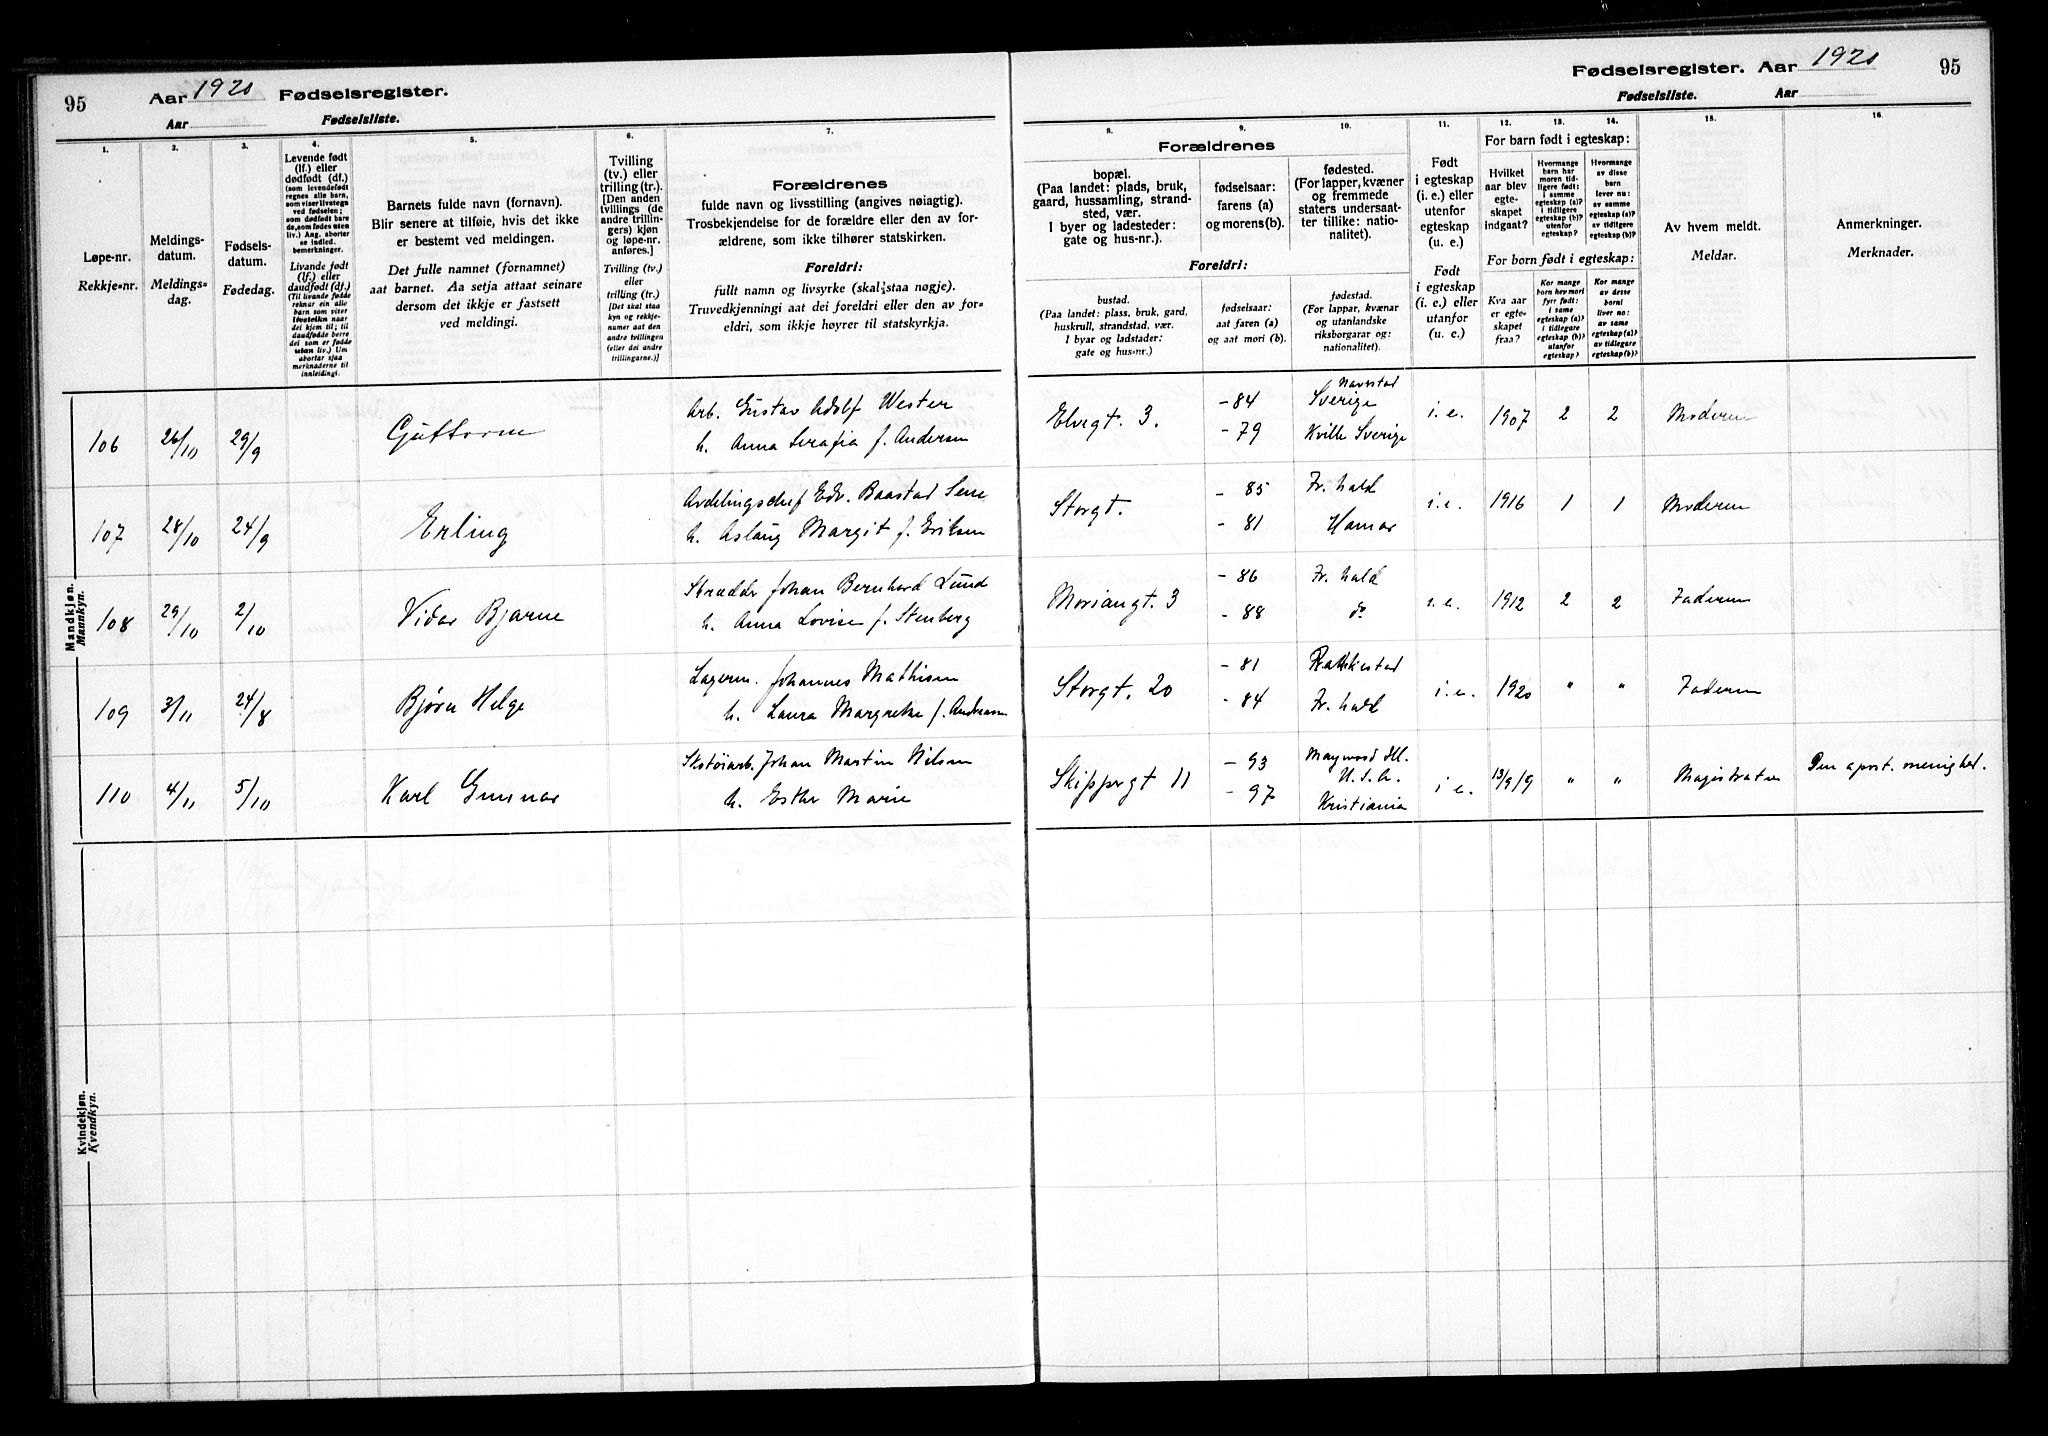 95 Aar 1920 Fødselsregister.
Aar Fødselsliste.
Fødselsregister. Aar 1920 95
Fødselsliste. Aar
1.
Løpe-nr.
Rekkje-nr.
2.
Meldings-
datum.
Meldings-
dag.
3.
Fødsels-
datum.
Fødedag.
4.
Levende født
(lf.) eller
dødfødt (df.)
(som levendefødt
regnes alle barn,
som viser livstegn
ved fødselen;
som dødfødt bare
de, som fødes uten
liv.) Ang. aborter
se indled.
bemerkninger.
Livande født
(lf.) eller
daudfødt (df.)
(Til livande fødde
reknar ein alle
barn som viter
livsteikn naar
dei kjem til; til
daudfødde berre
dei som er fødde
utan liv.) Um
abortar sjaa
merknaderne til
innleidingi.
5.
Barnets fulde navn (fornavn).
Blir senere at tilføie, hvis det ikke
er bestemt ved meldingen.
Det fulle namnet (fornamnet)
aat barnet. Aa setja attaat seinare
dersom det ikkje er fastsett
ved meldingi.
6.
Tvilling
(tv.) eller
trilling (tr.).
[Den anden
tvillings (de
andre trillin-
gers) kjøn
og løpe-nr.
anføres.]
Tvilling (tv.)
eller
trilling (tr.)
[Det skal staa
kyn og rekkje-
numer aat den
andre tvillingen
(eller dei andre
trillingarne.)]
7.
Forældrenes
fulde navn og livsstilling (angives nøiagtig).
Trosbekjendelse for de forældre eller den av for-
ældrene, som ikke tilhører statskirken.
Foreldri:
fullt namn og livsyrke (skal staa nøgje).
Truvedkjenningi aat dei foreldri eller den av for-
eldri, som ikkje høyrer til statskyrkja.
Forældrenes
8.
bopæl.
(Paa landet: plads, bruk,
gaard, hussamling, strand-
sted, vær.
I byer og ladesteder:
gate og hus-nr.).
9.
fødselsaar:
farens (a)
og morens (b).
10.
fødested.
(For lapper, kvæner
og fremmede
staters undersaat-
ter tillike: natio-
nalitet).
Foreldri:
bustad.
(Paa landet: plass, bruk, gard,
huskrull, strandstad, vær.
I byar og ladstader:
gate og hus-nr.)
fødselsaar:
aat faren (a)
og aat mori (b).
fødestad.
(For lappar, kvænar
og utanlandske
riksborgarar og:
nationalitet).
11.
Født
i egteskap
(i. e.) eller
utenfor
egteskap
(u. e.)
Født
i egteskap
(i. e.) eller
utanfor
(u. e.).
For barn født i egteskap:
12.
Hvilket
aar blev
egte-
skapet
indgaat?
13.
Hvormange
barn har
moren tid-
ligere født:
i samme
egteskap (a)?
i tidligere
egteskap (b)?
utenfor
egteskap?
14.
Hvormange
av disse
barn
lever nu:
av samme
egteskap (a)?
av tidligere
egteskap (b)?
For born født i egteskap:
Kva aar
er egte-
skapet
fraa?
Kor mange
born hev mori
fyrr født:
i same
egteskap (a)?
i tidlegare
egteskap (b)?
utanfor
egteskap?
Kor mange
av desse
borni
liver no:
av same
egteskap (a)?
av tidlegare
egteskap (b)?
15.
Av hvem meldt.
Meldar.
16.
Anmerkninger.
Merknader.
Mandkjøn.
Mannkyn.
106 26/10 29/9 Guttorm Arb. Gustav Adolf Wester
h. Anna Serafia f. Andersen
Elvegt. 3. - 84 Naverstad Sverige
- 79 Kville Sverige
i.e. 1907 2 2 Moderen
107 28/10 24/9 Erling Avdelingschef Edv. Baastad
h. Aslaug Margit f. Eriksen
Storgt. - 85 Fr.hald
- 81 Hamar
i.e. 1916 1 1 Moderen
108 29/10 2/10 Vidar Bjarne Skrædder Johan Bernhard Lund
h. Anna Lovise f. Stenberg
Moriangt. 3 - 86 Fr. hald
- 88 do
i.e. 1912 2 2 Faderen
109 3/11 24/8 Bjørn Helge Lagerm. Johannes Mathisen
h. Laura Margrethe f. Andersen
Storgt. 20 - 81 Rakkestad
- 84 Fr. hald
i.e. 1920 " " Faderen
110 4/11 5/10 Karl Gunnar Skotøiarb. Johan Martin Nilsen
h. Esther Marie
Skippergt 11 - 93 Maywood Ill. U.S.A.
- 97 Kristiania
i e. 13/9 19 " " Magistraten Den apost. menighed.
Kvindekjøn.
Kvendkyn.